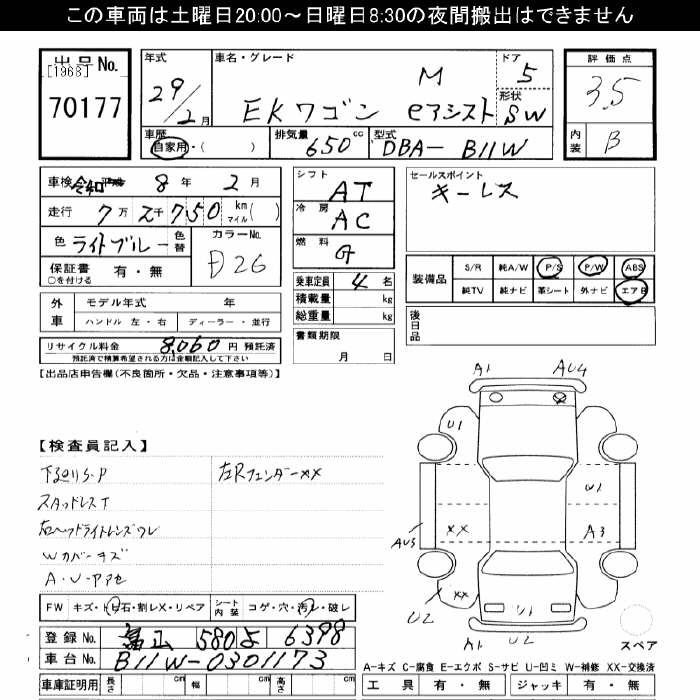 この車両は土曜日20:00〜日曜日8:30の夜間搬出はできません
出品No.
[1968]
70177
年式
29/2月
車名・グレード
M
EKワゴン eアシスト
ドア
5
形状
SW
評価点
3.5
内装
B
車歴
自家用・( )
排気量
650cc
型式
DBA- B11W
車検 令和 平成 8年 2月
走行 7万2千750 km マイル( )
色 ライトブルー 色替
カラーNo.
D26
保証書 有・無
○を付ける
外車 モデル年式 年
ハンドル 左・右 ディーラー・並行
リサイクル料金 8,060円 預託済
預託済で精算希望される方は金額記入して下さい
シフト AT
冷房 AC
燃料 G
乗車定員 4名
積載量 kg
総重量 kg
書類期限
月 日
セールスポイント
キーレス
装備品 S/R 純A/W P/S P/W ABS
純TV 純ナビ 革シート 外ナビ エアB
後日品
【出品店申告欄(不良箇所・欠品・注意事項等)】
【検査員記入】
下廻りS・P
左Rフェンダーxx
スタッドレスT
右ヘッドライトレンズワレ
Wカバーキズ
A・U・Pアセ
A1 AU4
U1
U1
AU3 XX A3
XX
U2 U1
A1 U2
スペア
FW キズ・飛石・割レX・リペア シート内装 コゲ・穴・汚レ・破レ
登録No. 富山 580 よ 6398
車台No. B11W-0301173
車庫証明用 長さ cm 幅 cm 高さ cm
A-キズ C-腐食 E-エクボ S-サビ U-凹ミ W-補修 XX-交換済
工具 有・無 ジャッキ 有・無